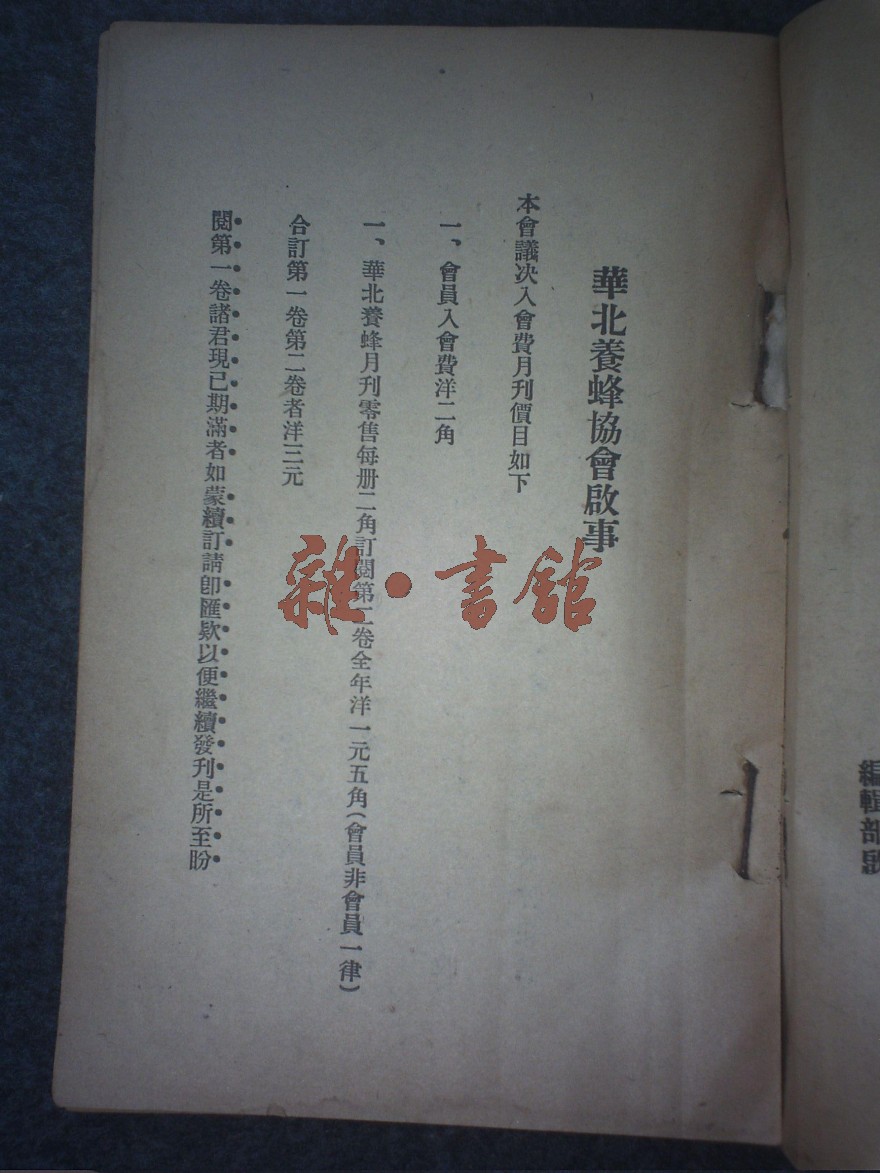 華北養蜂協會啟事
本會議决入會費月刊價目如下
一、會員入會費洋二角
一、華北養蜂月刊零售每册二角訂閱第二卷全年洋一元五角(會員非會員一律)
合訂第一卷第二卷者洋三元
閱第一卷諸君現已期滿者如蒙續訂請卽匯欵以便繼續發刊是所至盼
雜·書館
編輯部